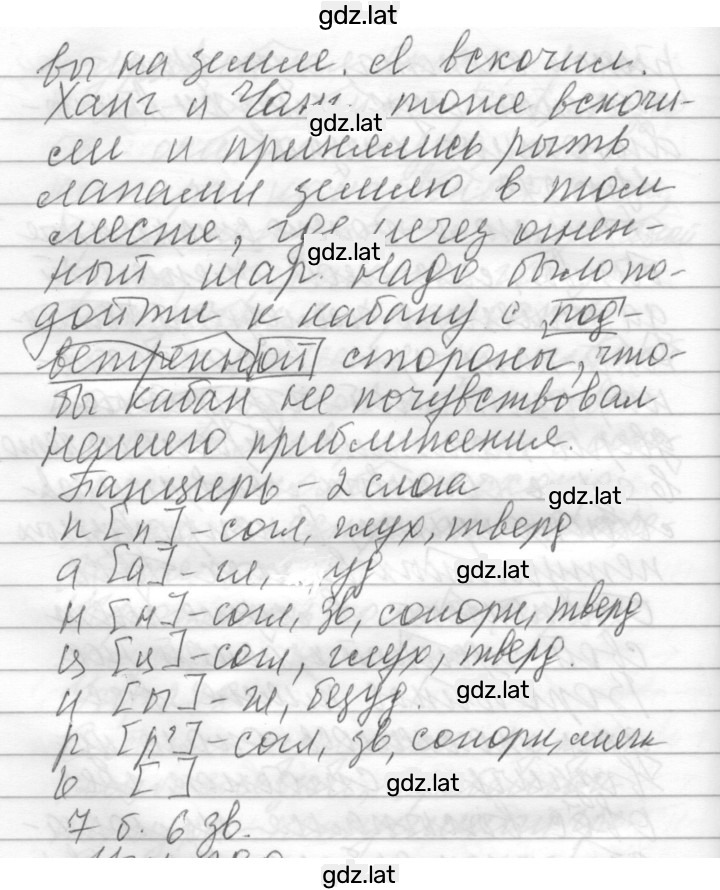 gdz.lat
вы на земле. Я вскочил.
Ханг и Чанг тоже вскочи-
gdz.lat
ли и принялись рыть
лапами землю в том
месте, где исчез огнен-
gdz.lat
ный шар. Надо было по-
дойти к кабану с под-
ветренной стороны, что-
бы кабан не почувствовал
нашего приближения.
Панцирь - 2 слога
gdz.lat
п [п] - согл, глух, тверд
а [а] - гл, уд
gdz.lat
н [н] - согл, зв, сонорн, тверд
ц [ц] - согл, глух, тверд.
и [ы] - гл, безуд.
gdz.lat
р [р'] - согл, зв, сонорн, мягк
ь [ ]
gdz.lat
7 б. 6 зв.
gdz.lat